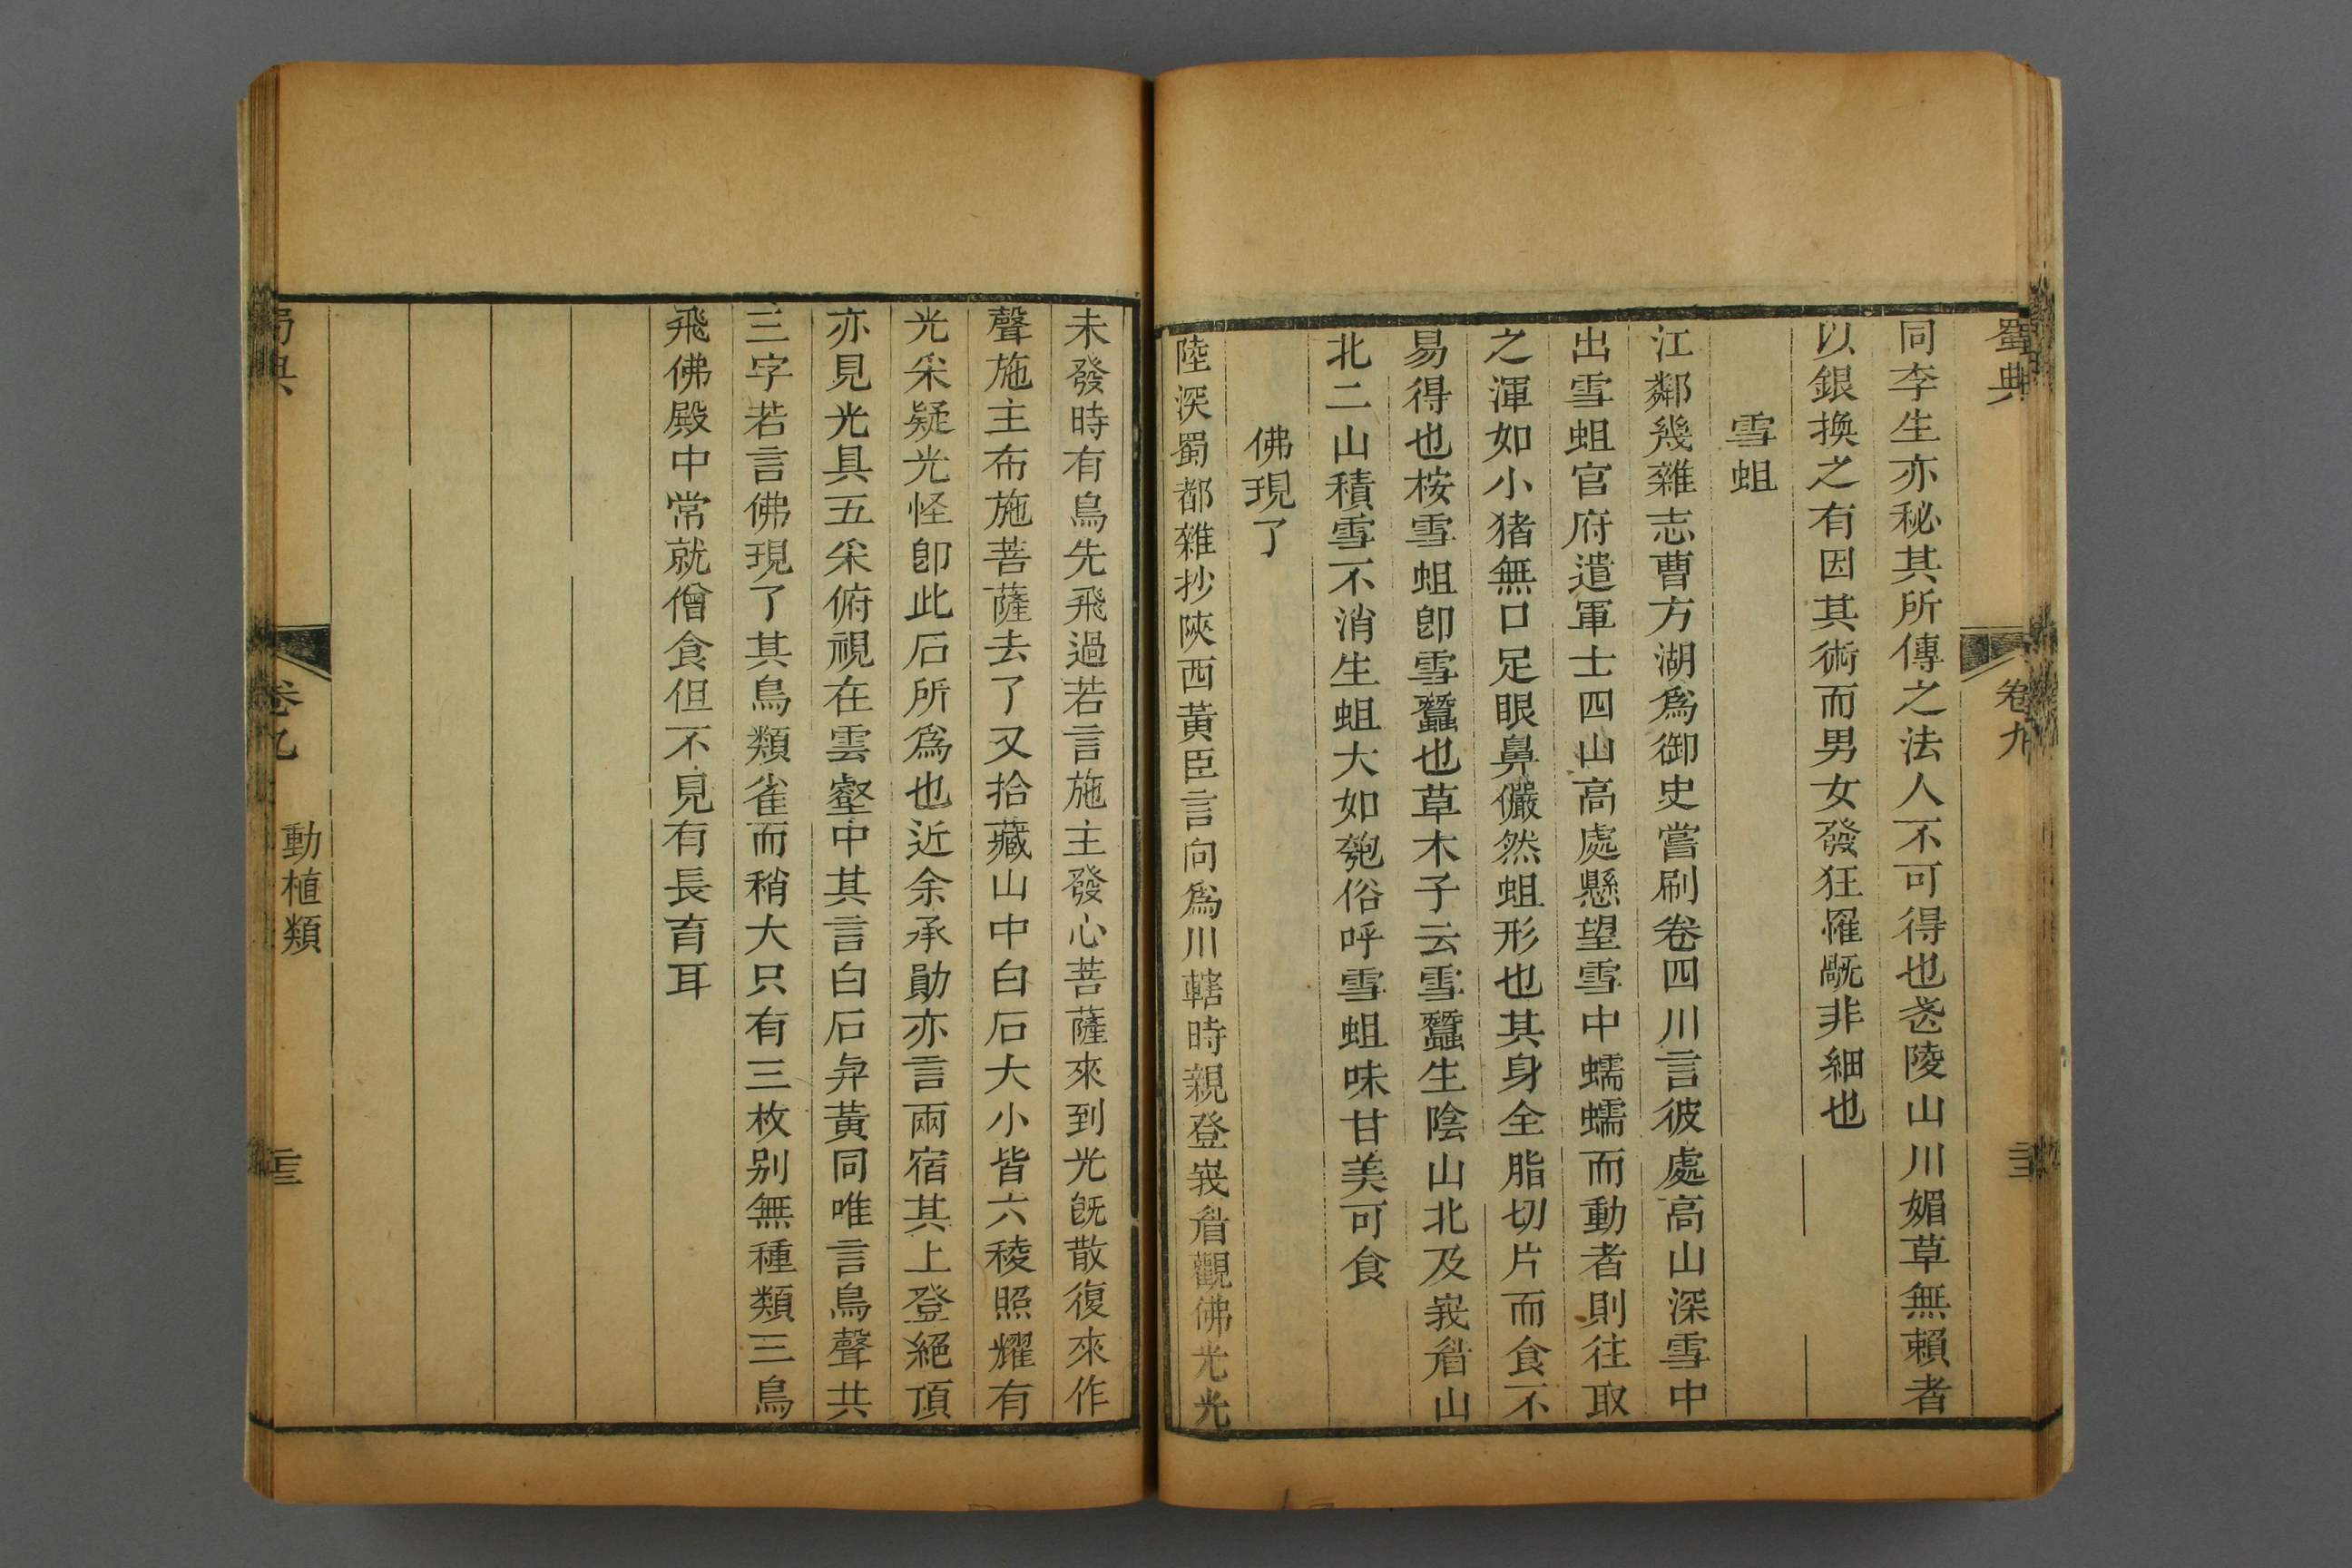 蜀典
卷九
同李生亦秘其所傳之法人不可得也老陵山川媚草無賴者
以銀換之有因其術而男女發狂罹厩非細也
雪蛆
江鄰幾雜志曹方湖爲御史嘗刷卷四川言彼處高山深雪中
出雪蛆官府遣軍士四山高處懸望雪中蠕蠕而動者則往取
之渾如小猪無口足眼鼻儼然蛆形也其身全脂切片而食不
易得也桉雪蛆卽雪蠶也草木子云雪蠶生陰山北及峩睂山
北二山積雪不消生蛆大如瓠俗呼雪蛆味甘美可食
佛現了
陸深蜀都雜抄陝西黃臣言向爲川轄時親登峩睂觀佛光光
未發時有鳥先飛過若言施主發心菩薩來到光旣散復來作
聲施主布施菩薩去了又拾藏山中白石大小皆六稜照耀有
光采疑光怪卽此石所爲也近余承勛亦言兩宿其上登絕頂
亦見光具五采俯視在雲壑中其言白石與黃同唯言鳥聲共
三字若言佛現了其鳥類雀而稍大只有三枚别無種類三鳥
飛佛殿中常就僧食但不見有長育耳
卷九
動植類